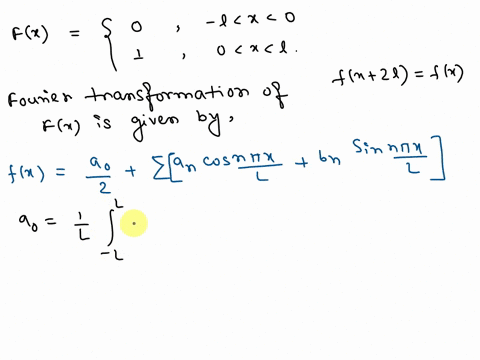 F(x) = { 0 , -l < x < 0
1 , 0 < x < l.
f(x+2l) = f(x)
Fourier transformation of
F(x) is given by,
f(x) = a₀/2 + Σ[aₙ cos nπx/L + bₙ sin nπx/L]
a₀ = 1/L ∫_{-L}^{L}